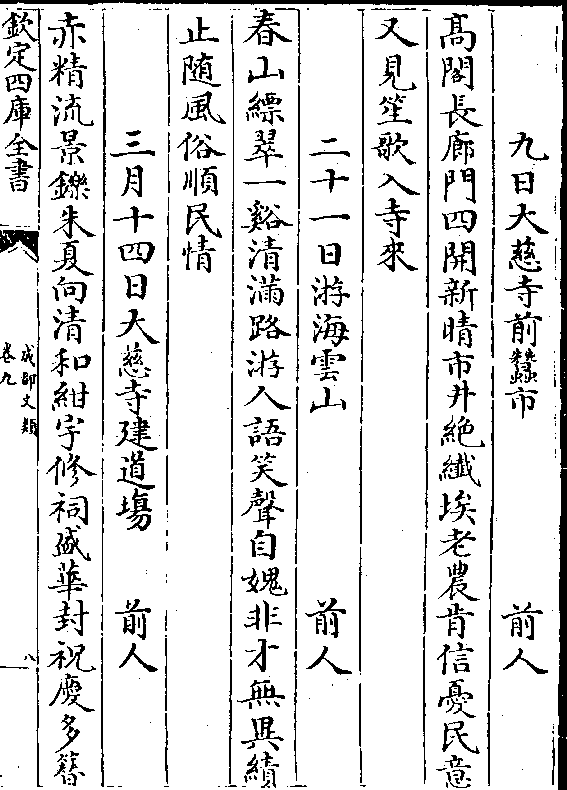 九日大慈寺前蠶市　前人
高閣長廊門四開新晴市井絶纖埃老農肯信憂民意
又見笙歌入寺來
二十一日游海雲山　前人
春山縹翠一谿清滿路游人語笑聲自媿非才無異績
止随風俗順民情
三月十四日大慈寺建道塲　前人
赤精流景鑠朱夏向清和紺宇修祠盛華封祝慶多簪
欽定四庫全書
成都文類
卷九
八